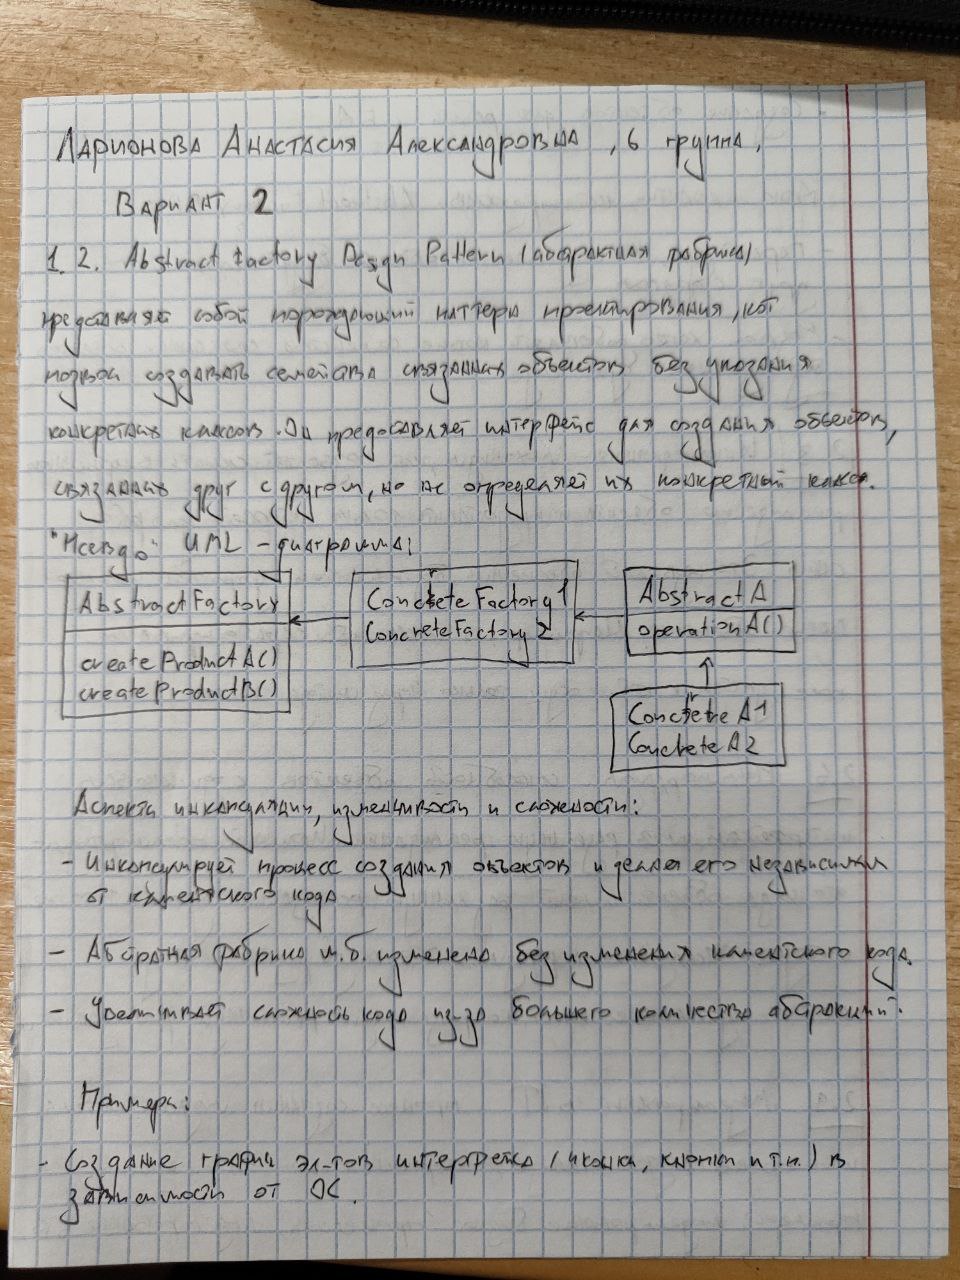 Ларионова Анастасия Александровна, 6 группа,
Вариант 2
1.2. Abstract Factory Design Pattern (абстрактная фабрика)
представляет собой порождающий паттерн проектирования, кот
позвол создавать семейства связанных объектов без указания
конкретных классов. Он предоставляет интерфейс для создания объектов,
связанных друг с другом, но не определяет их конкретный класс.
"Псевдо" UML - диаграмма:
AbstractFactory
createProductA()
createProductB()
ConcreteFactory1
ConcreteFactory2
AbstractA
operationA()
ConcreteA1
ConcreteA2
Аспекты инкапсуляции, изменчивости и сложности:
- Инкапсулирует процесс создания объектов и делает его независимым
от клиентского кода
- Абстрактная фабрика м.б. изменена без изменения клиентского кода.
- Увеличивает сложность кода из-за большего количества абстракций.
Примеры:
- Создание графич эл-тов интерфейса (иконки, кнопки и т.п.) в
зависимости от ОС.